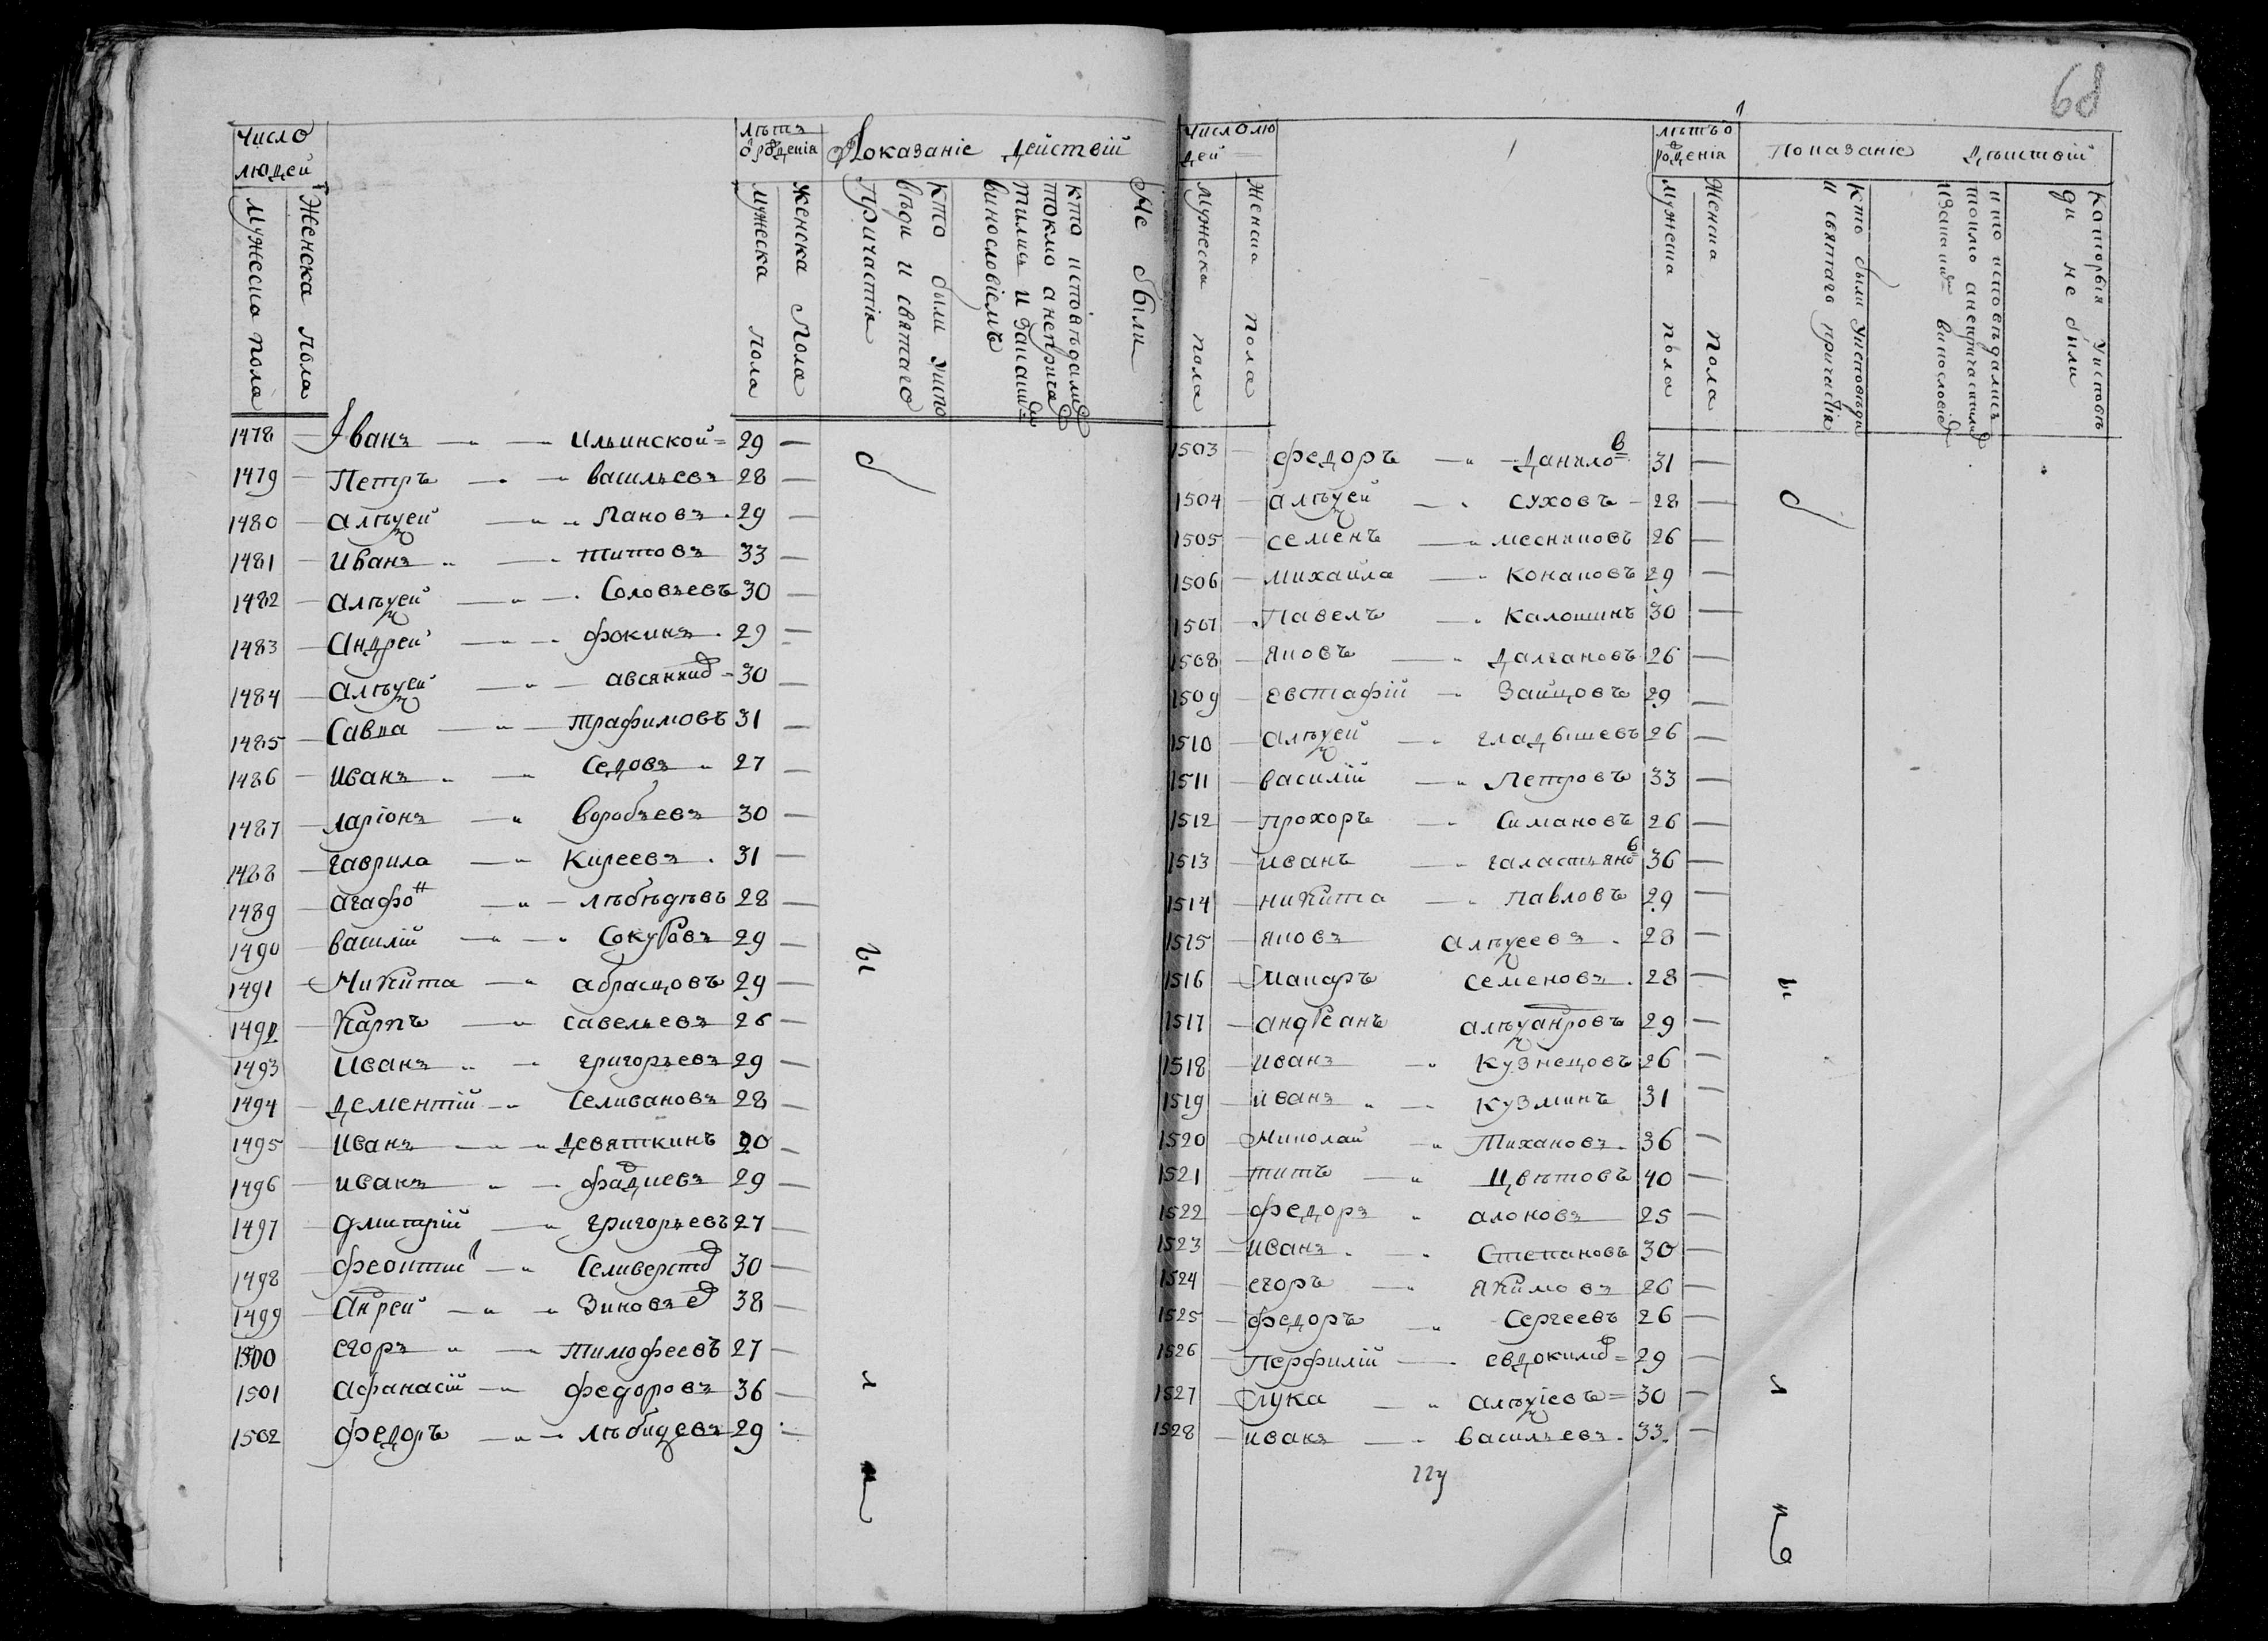 68
Число людей
лѣтъ ѡ рожденія
Показаніе Действій
Мужеска пола
Женска пола
мужеска пола
Женска Пола
Кто были уисповѣди и святаго Причастія
Кто исповѣдались токмо а непричастились и Закаким винословіемъ
Не были
1478 — Иванъ — Ильинской = 29 —
1479 — Петръ — васильевъ 28 —
1480 — алѣѯей — Пановъ 29 —
1481 — Иванъ — титовъ 33 —
1482 — алѣѯей — Соловьевъ 30 —
1483 — Андрей — Фокинъ 29 —
1484 — алѣѯей — 30 —
1485 — Савва — Трафимовъ 31 —
1486 — Иванъ — Седовъ 27 —
1487 — ларіонъ — Воробьевъ 30 —
1488 — гаврила — Киреевъ 31 —
1489 — агафон — лѣбѣдѣвъ 28 —
1490 — василій — Сокуровъ 29 —
1491 — Никита — абрасцовъ 29 —
1492 — Карпъ — савельевъ 26 —
1493 — Иванъ — григорьевъ 29 —
1494 — дементій — Селивановъ 28 —
1495 — Иванъ — Девяткинъ 20 —
1496 — иванъ — фадиевъ 29 —
1497 — Дмитрій — григорьевъ 27 —
1498 — феоктис — Селиверстов 30 —
1499 — Андрей — Зиновьев 38 —
1500 егоръ — тимофеевъ 27 —
1501 афанасій — федоровъ 36 —
1502 федоръ — лѣбидевъ 29 —
б
ы
л
и
Число людей
лѣтъ о рожденія
Показаніе Дѣиствій
Мужеска пола
Женска пола
Мужеска пола
Женска пола
Кто были Уисповѣди и святаго причастія
и кто исповѣдались токмо анепричастились изакаким винословіем
Каторыя Уисповѣди не были
1503 — федоръ — Данилов 31 —
1504 — алѣѯей — суховъ — 28 —
1505 — семенъ — месниковъ 26 —
1506 — михаила — Конаковъ 29 —
1507 — Павелъ — Калошинъ 30 —
1508 — яковъ — Далгановъ 26 —
1509 — евстафій — Зайцовъ 29 —
1510 — алѣѯей — гладышевъ 26 —
1511 — василій — Петровъ 33 —
1512 — прохоръ — Симановъ 26 —
1513 — иванъ — галастьянов 36 —
1514 — никита — павловъ 29 —
1515 — яковъ алѣѯеевъ 28 —
1516 — Макаръ семеновъ 28 —
1517 — андреанъ алѣѯандровъ 29 —
1518 — иванъ — Кузнецовъ 26 —
1519 — иванъ — Кузминъ 31 —
1520 — Николай — Тихановъ 36 —
1521 — титъ — Цвѣтовъ 40 —
1522 — федоръ алоновъ 25 —
1523 — иванъ — Степановъ 30 —
1524 — егоръ — якимовъ 26 —
1525 — федоръ Сергеевъ 26 —
1526 — Перфилій — евдокимов = 29 —
1527 — лука — алѣѯіевъ = 30 —
1528 — иванъ — васильевъ 33 —
б
ы
л
и